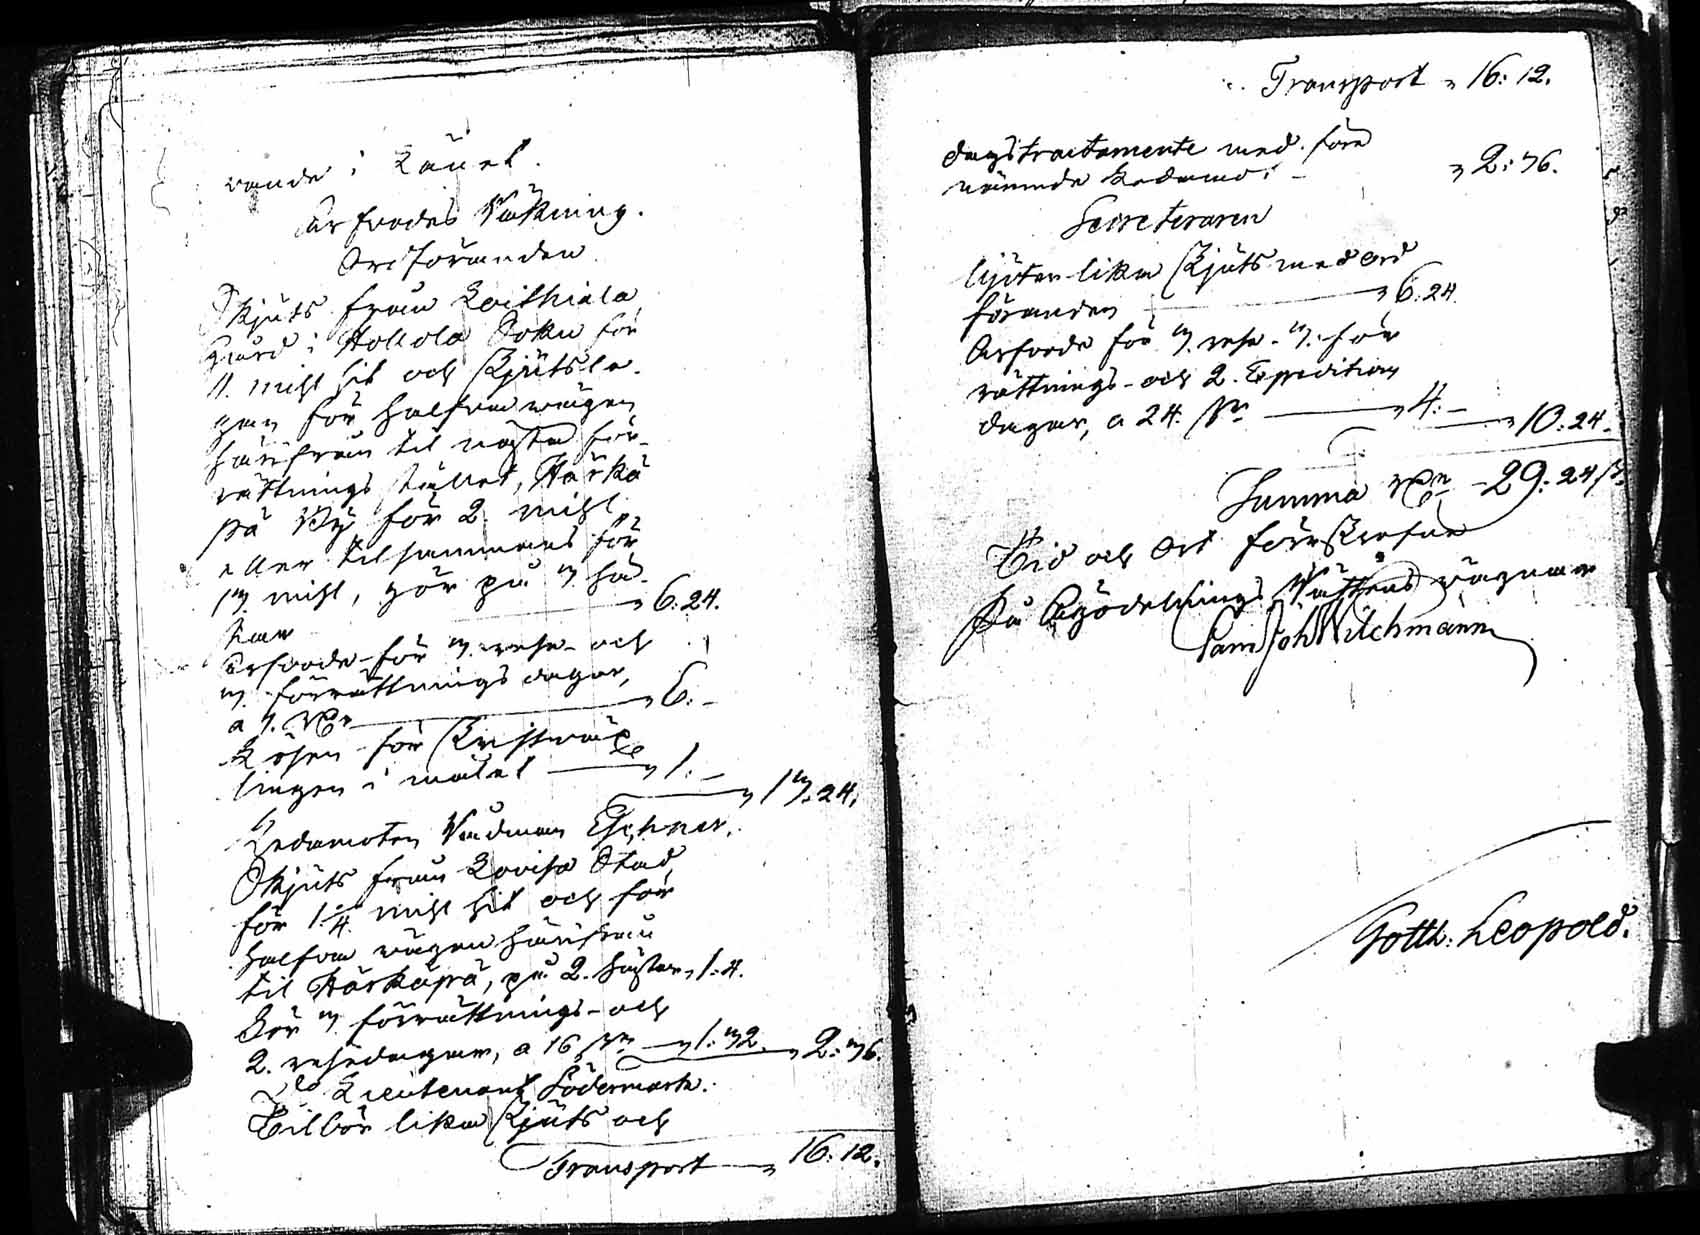 rande i Länet.
Arfvodes Räkning.
Ordföranden
Skjuts från Koithiala
Gård i Hollola Sokn för
11. mihl hit och Skjutsle-
gan för halfva vägen
härifrån til nästa för-
rättnings stället, Härkä
pä By för 2. mihl
eller tilsammans för
13. mihl, gör på 3 hä-
star 6.24.
Arfvode för 3. rese- och
3. förrättnings dagar,
a 1. Rdr 6.-
Lösen för Skriftväx
lingen i målet 1.-
13.24.
Ledamoten Rådman Eschner.
Skjuts från Lovisa Stad
för 1 1/4 mihl hit och för
halfva vägen härifrån
til Härkäpä, på 2. hästar, 1.4.
För 3 förrättnings- och
2. resedagar, a 16 sk 1.32. 2.36.
Do Lieutenant Södermark.
Tilbör lika Skjuts och
Transport 16.12.
Transport 16.12.
dagstractamente med före
nämnde Ledamot 2.36.
Secreteraren
Njuter lika Skjuts med Ord
föranden 6.24.
Arfvode för 3. rese- 3. för
rättnings- och 2. Expeditions
dagar, a 24. sk 4.- 10.24.
Summa Rdr 29.24 sk.
Tid och Ort förskrefne
På Ägodelnings Rättens vägnar
Sam Joh Wilchmann
Gotth. Leopold.